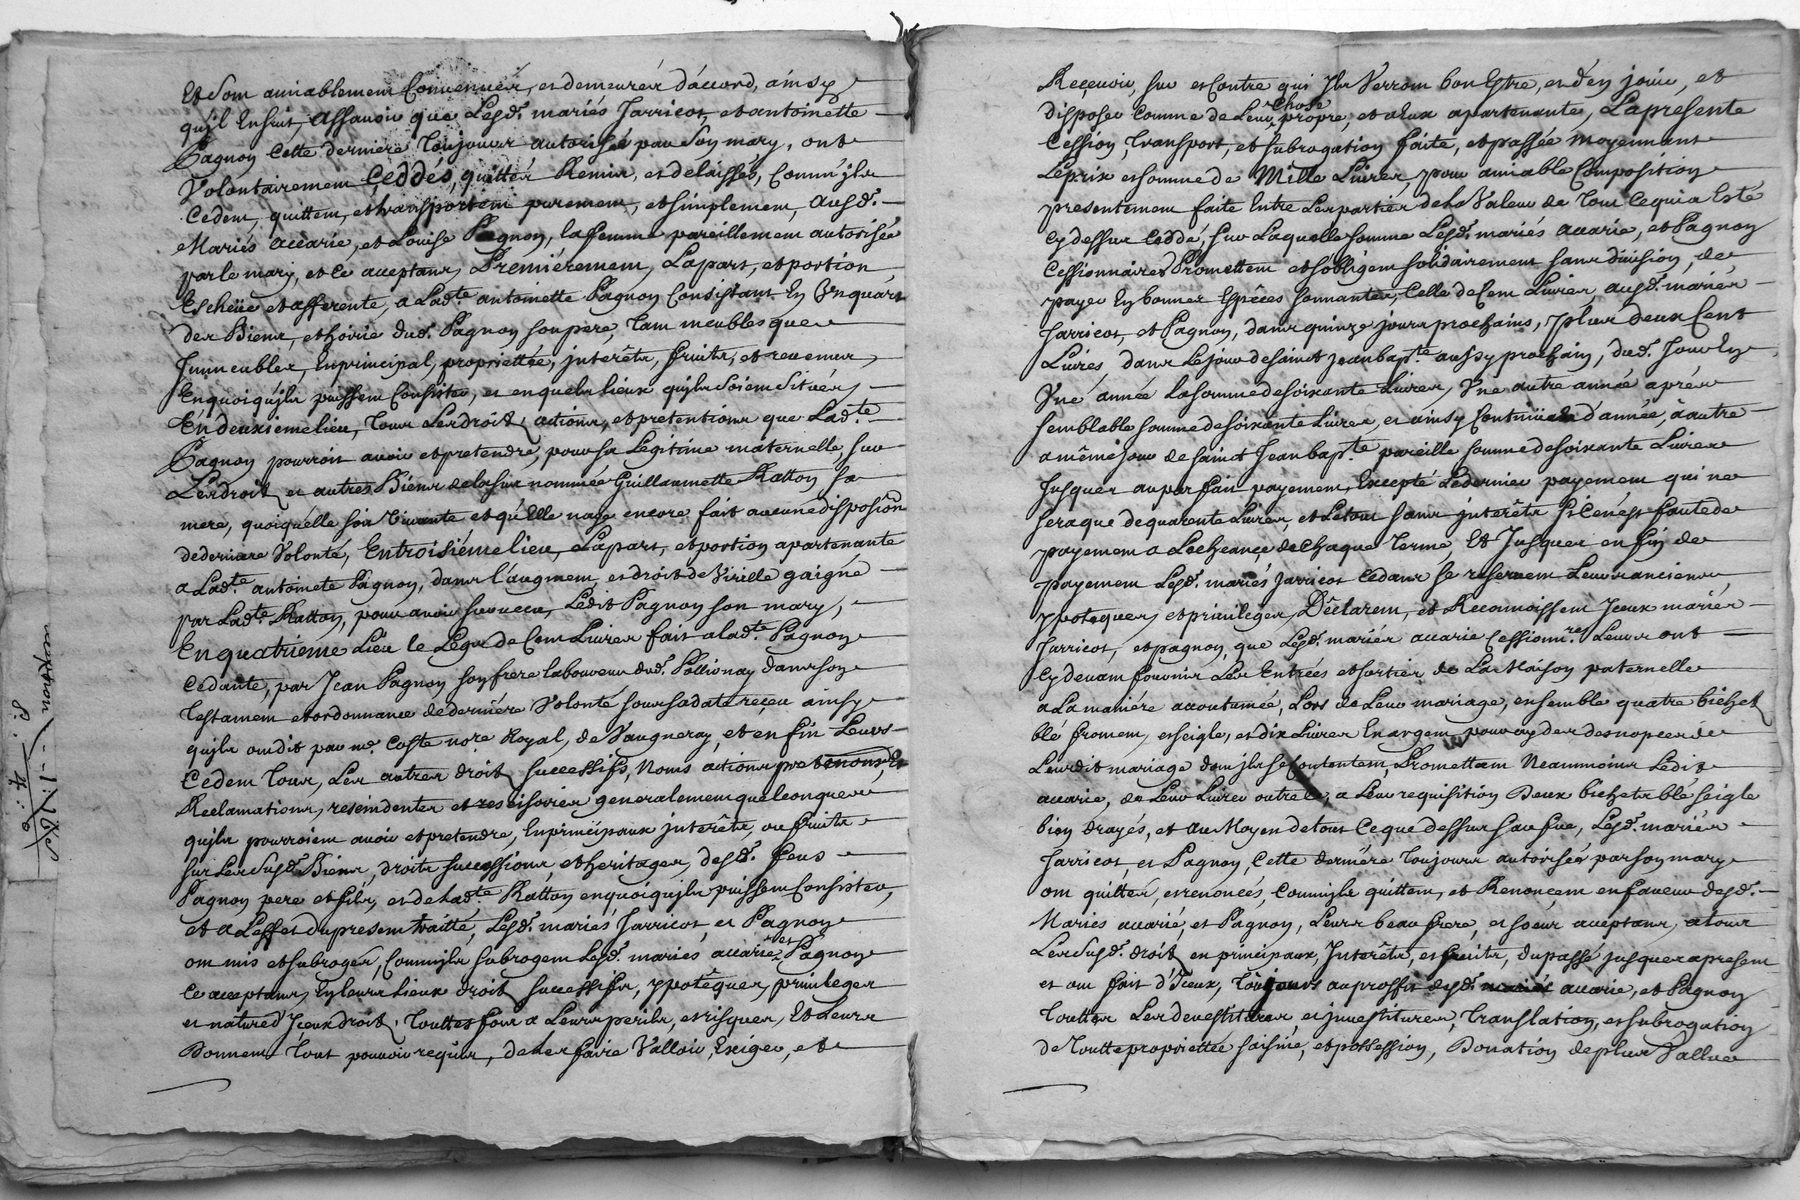 Et Sont amiablement Convenuës, et demeurés d'accord, ainsy
qu'il Ensuit, Assavoir que Lesd. mariés Jarricot, et antoinette
Pagnon Cette derniere Toujours autorisée par Son mary, ont
Volontairement Ceddés, quittés Remis, et délaissés, Comm'ils
Cedent, quittent, et transportent purement, et simplement, Ausd.
Mariés accarie, et Louise Pagnon, la femme pareillement autorisée
par le mary, et ce acceptants, Premiérement, La part, et portion
Escheüe et afferente, a Ladte antoinette Pagnon Consistant En Un quart
des Biens, et hoirie dud. Pagnon son pere, Tant meubles que
Immeubles, En principal, propriettée, interêts, fruits, et revenus,
En quoi qu'ils puissent Consister, et en quels lieux qu'ils Soient Situés,
En deuxieme lieu, Tous Les droits, actions, et pretentions que Ladte
Pagnon pourroit avoir et pretendre, pour sa Légitime maternelle, sur
Les droits et autres Biens de la sus nommée Guillaumette Ratton sa
mere, quoiquelle soit Vivante et qu'Elle n'aye encore fait aucune disposi͠on
de derniere Volonté, En troisiéme lieu, La part, et portion apartenante
a Ladte antoinete Pagnon, dans l'augment, et droit de Virille gaigné
par Ladte Ratton, pour avoir survecu, Ledit Pagnon son mary,
En quatriéme Lieu le Legs de Cent Livres fait a ladte Pagnon
Cedante, par Jean Pagnon son frere laboureur dud. Pollionay dans son
Testament et ordonnance de derniére Volonté sous sa datte reçeu ainsy
qu'ils ont dit par me. Coste nore Royal, de Vaugneray, et en fin Leurs
Cedent Tous, Les autres droits successifs, Noms actions, pretentions, Et
Reclamations, rescindentes et rescisoires generalement quelconques
qu'ils pourroient avoir et pretendre, En principaux interêts, ou fruits
sur Les Susd. Biens, droits successions, et heritages, desd. feus
Pagnon pere et fils, et de Ladte Ratton en quoi qu'ils puissent Consister,
et a L'effet du present traitté, Lesd. mariés Jarricot, et Pagnon
ont mis et subrogés, Comm'ils subrogent Lesd. mariés accarie, et Pagnon
Ce acceptants, En leurs Lieux droits successifs, ypotêques, privileges
et nature d'Iceux droits, Touttes fois a Leurs perils, et risques, Et Leurs
Donnent Tout pouvoir requis, de les faire Valloir, Exiger, et
Reçevoir, sur et Contre qui Ils Verront bon Estre, et d'en jouir, et
disposer Comme de Leur Chose propre, et a Eux apartenante, La presente
Cession, Transport, et subrogation faite, et passée moyennant
Le prix et somme de Mille Livres, pour amiable Composition
presentement faite Entre Les parties de la Valeur de Tout Ce qui a Esté
Cy dessus Ceddé, sur Laquelle somme Lesd. mariés accarie, et Pagnon
Cessionnaires Promettent et s'obligent solidairement sans division, de
payer En bonnes Espêces sonnantes, Celle de Cent Livres, ausd. mariés
Jarricot, et Pagnon, dans quinze jours prochains, plus deux Cent
Livres, dans Le jour de saint jean bapte. aussy prochain, dud. Jour En
Une année La somme de soixante Livres, Une autre année aprés
semblable somme de soixante Livres, et ainsy Continüer d'année, à autre
a même jour de saint Jean bapte pareille somme de soixante Livres
Jusques au parfait payement, Excepté Le dernier payement qui ne
sera que de quarente Livres, et Le tout sans interêts si Ce n'est faute de
payement a L'echeance de Chaque Terme Et Jusques en fin de
payement Lesd. mariés Jarricot Cedants se reservent Leurs anciennes
ypoteques, et privileges, Déclarent, et Reconnoissent Iceux mariés
Jarricot, et pagnon, que Lesd. mariés accarie Cessionnres Leurs ont
Cy devant fournis Les Entrées et sorties de La Maison paternelle
a La maniére accoutumée, Lors de Leur mariage, ensemble quatre bichets
blé froment, et seigle, et dix Livres En argent pour ayder des nopces de
Leurdit mariage dont ils se Contentent, Promettant Neanmoins Ledit
accarie, de Leur Livrer outre Ce, a Leur requisition Deux bichets blé seigle
bien drayés, et au Moyen de tout Ce que dessus sauf sue, Lesd. mariés
Jarricot, et Pagnon, Cette derniére Toujours autorisée par son mary
ont quittés, et renoncés, Comm'ils quittent, et Renonçent en faveur desd.
Mariés accarie, et Pagnon, Leurs beau frere, et soeur acceptants, a tous
Les Susd. droits en principaux, Interêts, et fruits, du passé jusques a present
et ont fait d'Iceux, Toujours au proffit desd. mariés accarie, et Pagnon
Touttes Les devestitures et investitures, Translation, et subrogation
de Toutte propriettée saisine, et possession, Donation de plus Vallue